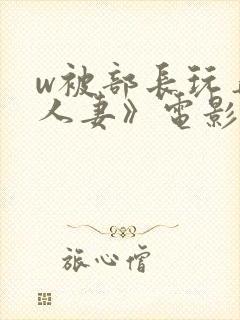 w被部長玩
人妻》電影
旅心僧